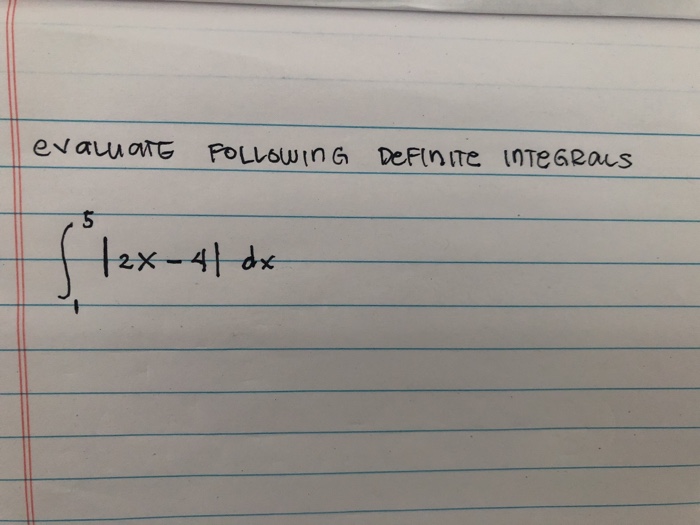 evaluate FOLLOWING DEFINITE INTEGRALS
∫₁⁵ |2x - 4| dx